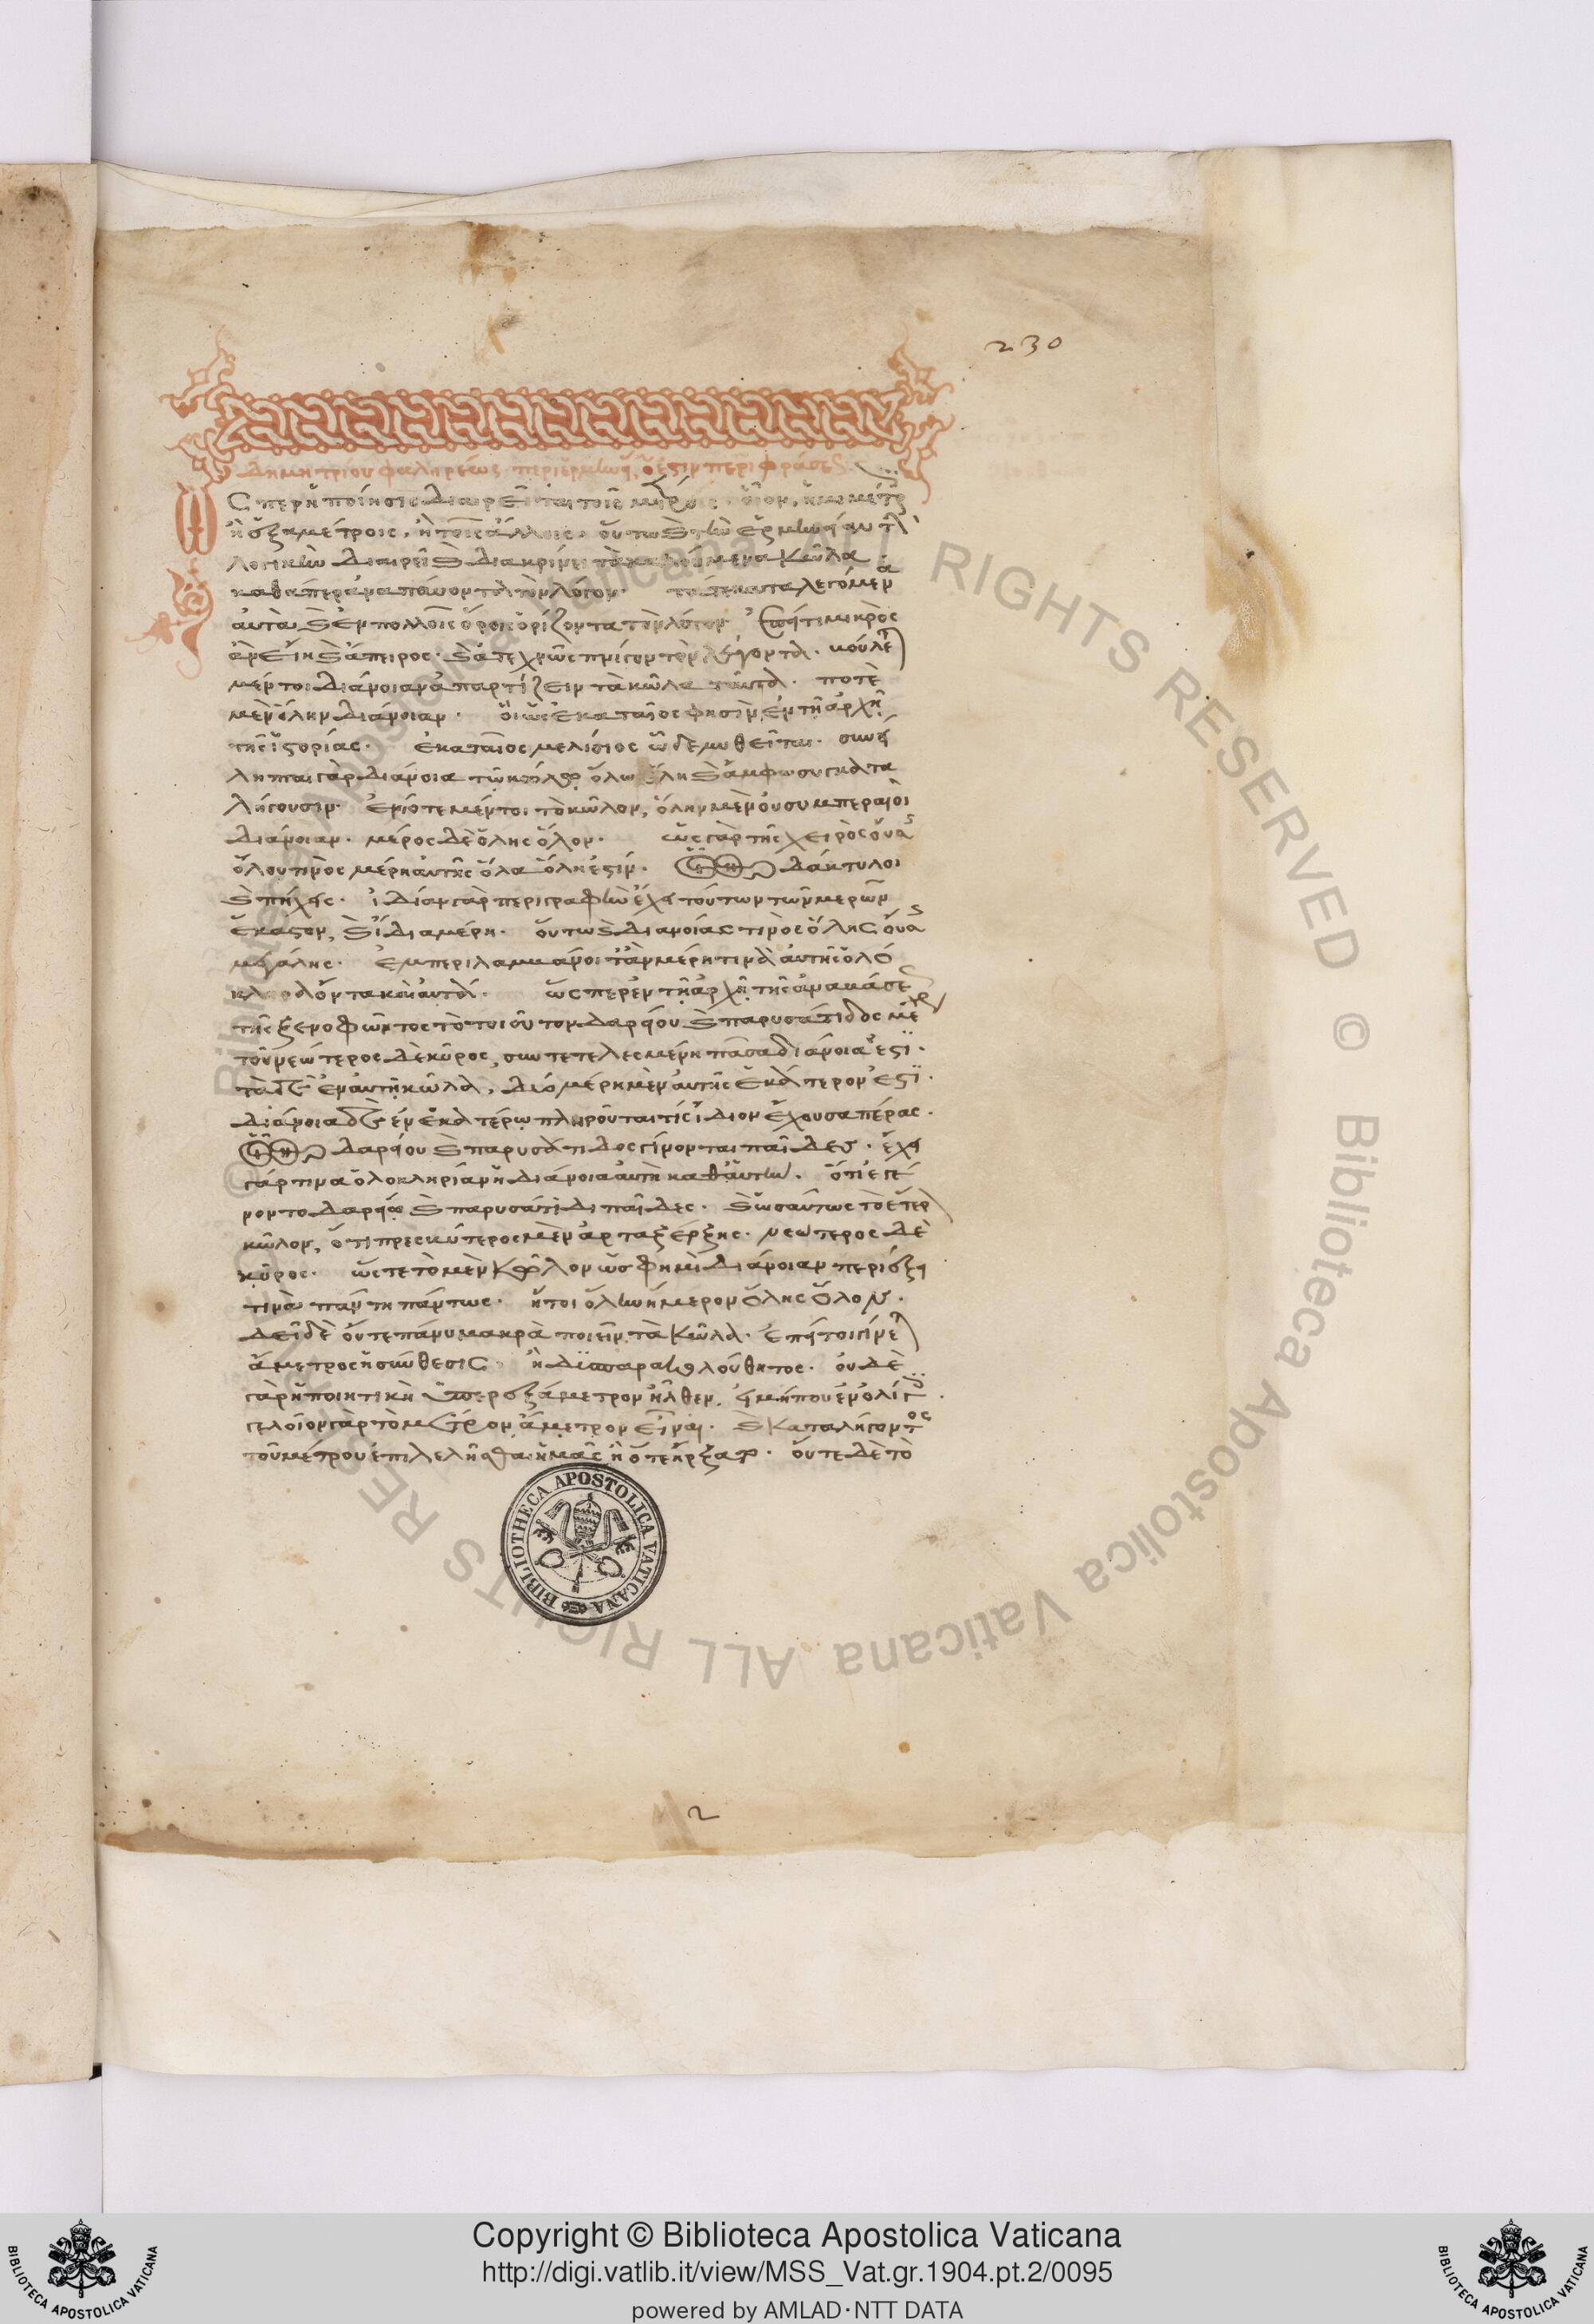 230
Δημητρίου φαληρέως περὶ ἑρμηνείας ὅ ἐστιν περὶ φράσεως
Ὥσπερ ἡ ποίησις διαιρεῖται τοῖς μέτροις οἷον, ἡμιμέτροις
ἢ ἑξαμέτροις, ἢ τοῖς ἄλλοις. οὕτω καὶ τὴν ἑρμηνείαν τὴν
λογικὴν διαιρεῖ καὶ διακρίνει τὰ καλούμενα κῶλα
καθάπερ ἀναπαύοντα τὸν λόγον τά τε καταλεγόμενα
αὐτὰ καὶ ἐν πολλοῖς ὅροις ὁρίζοντα τὸν λόγον ἐπεί τοι μακρὸς
ἂν εἴη καὶ ἄπειρος. καὶ ἀτεχνῶς πνίγων τὸν λέγοντα. βούλεται
μέντοι διάνοιαν ἀπαρτίζειν τὰ κῶλα ταῦτα. ποτὲ
μὲν ὅλην διάνοιαν. οἷον ὡς ἑκαταῖος φησὶν ἐν τῇ ἀρχῇ
τῆς ἱστορίας. ἑκαταῖος μιλήσιος ὧδε μυθεῖται. συνεί
ληπται γὰρ διάνοια τῷ κώλῳ ὅλῳ ὅλη καὶ ἄμφω συγκατα
λήγουσιν. ἐνίοτε μέντοι τὸ κῶλον, ὅλην μὲν οὐ συμπεραιοῖ
διάνοιαν. μέρος δὲ ὅλης ὅλον. ὡς γὰρ τῆς χειρὸς οὔσης
ὅλου τινὸς μέρη αὐτῆς ὅλα ὅλης ἐστίν. οἷον δάκτυλοι
καὶ πῆχυς. ἰδίαν γὰρ περιγραφὴν ἔχει τούτων τῶν μερῶν
ἕκαστον, καὶ ἴδια μέρη. οὕτω καὶ διανοίας τινὸς ὅλης οὔσης
μεγάλης. ἐμπεριλαμβάνοιτ' ἂν μέρη τινὰ αὐτῆς ὁλό
κληρα ὄντα καὶ αὐτά. ὥσπερ ἐν τῇ ἀρχῇ τῆς ἀναβάσεως
τῆς ξενοφῶντος τὸ τοιοῦτον δαρείου καὶ παρυσάτιδος μέχρι
τοῦ νεώτερος δὲ κῦρος, συντετελεσμένη πᾶσα διάνοιά ἐστι.
τὰ δ' ἐν αὐτῇ κῶλα, δύο μέρη μὲν αὐτῆς ἑκάτερον ἐστί.
διάνοια δὲ ἐν ἑκατέρῳ πληροῦταί τις ἴδιον ἔχουσα πέρας.
οἷον δαρείου καὶ παρυσάτιδος γίνονται παῖδες. ἔχει
γάρ τινα ὁλοκληρίαν ἡ διάνοια αὐτὴ καθ' αὑτήν. ὅτι ἐγέ
νοντο δαρείῳ καὶ παρυσάτιδι παῖδες. καὶ ὡσαύτως τὸ ἕτερον
κῶλον, ὅτι πρεσβύτερος μὲν ἀρταξέρξης. νεώτερος δὲ
κῦρος. ὥστε τὸ μὲν κῶλον ὥς φημι διάνοιαν περιέξει
τινὰ πάντη πάντως. ἤτοι ὅλην ἢ μέρον ὅλης ὅλον.
δεῖ δὲ οὔτε πάνυ μακρὰ ποιεῖν τὰ κῶλα. ἐπεί τοι γίνεται
ἄμετρος ἡ σύνθεσις ἢ δυσπαρακολούθητος. οὐδὲ
γὰρ ἡ ποιητικὴ ὑπὲρ ἑξάμετρον ἦλθεν, εἰ μή που ἐν ὀλίγοις.
γελοῖον γὰρ τὸ μέτρον ἄμετρον εἶναι. καὶ καταλήγοντος
τοῦ μέτρου ἐπιλελῆσθαι ἡμᾶς ἢ ὅτε ἤρξατο. οὔτε δὲ τὸ
BIBLIOTHECA APOSTOLICA VATICANA
2
© Biblioteca Apostolica Vaticana ALL RIGHTS RESERVED © Biblioteca Apostolica Vaticana ALL RIGHTS RESERVED
Copyright © Biblioteca Apostolica Vaticana
http://digi.vatlib.it/view/MSS_Vat.gr.1904.pt.2/0095
powered by AMLAD·NTT DATA
BIBLIOTECA APOSTOLICA VATICANA
BIBLIOTECA APOSTOLICA VATICANA